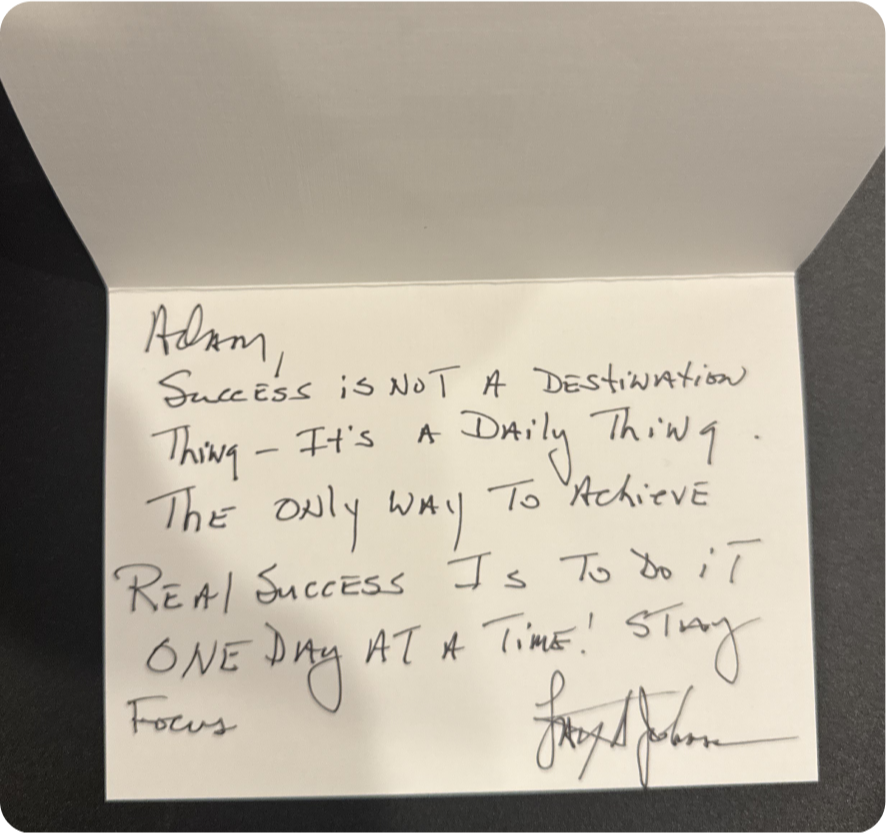 Adam,
Success is NOT A DEStiNAtioN
Thing – It's A DAily Thing.
The ONly WAy To Achieve
REAl Success Is To Do iT
ONE DAy AT A Time! STAy
Focus
Johnson